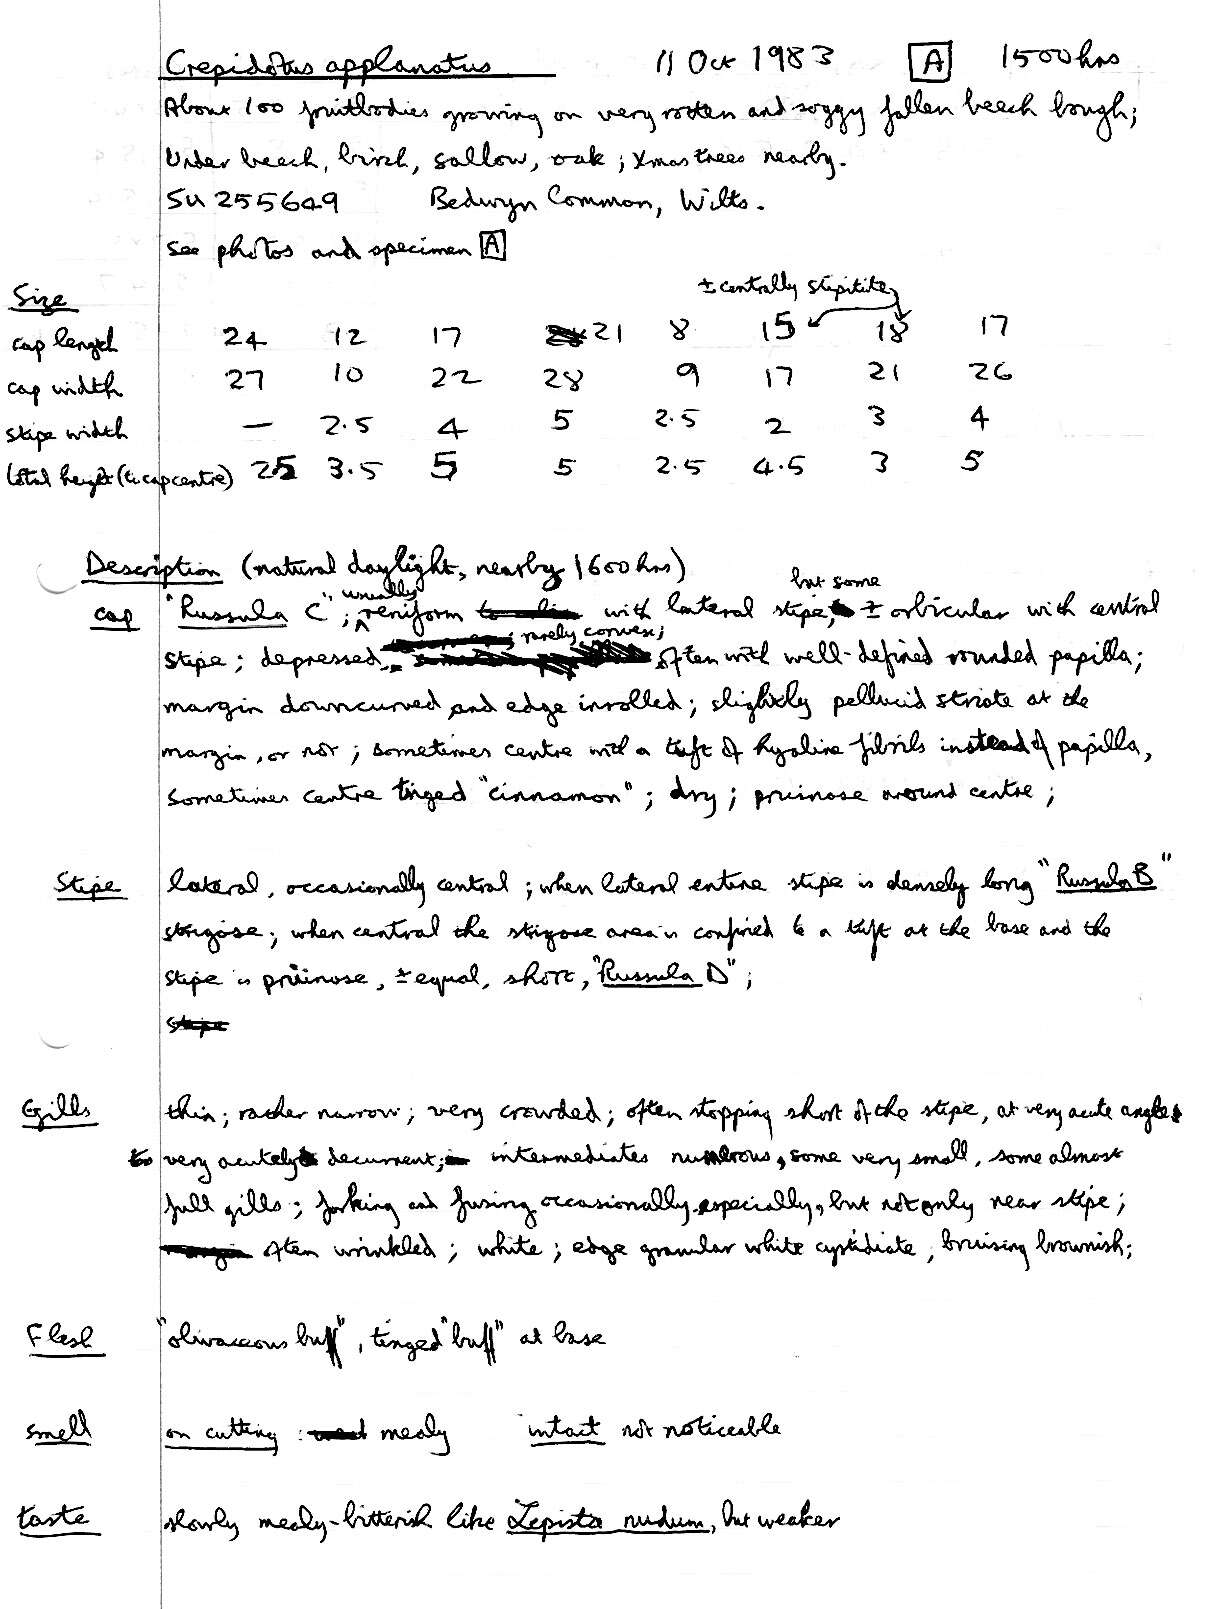 Crepidotus applanatus 11 Oct 1983 A 1500hrs
About 100 fruitbodies growing on very rotten and soggy fallen beech bough;
Under beech, birch, sallow, oak; Xmas trees nearby.
SU 255649 Bedwyn Common, Wilts.
see photos and specimen A
Size ± centrally stipitite
cap length 24 12 17 21 8 15 18 17
cap width 27 10 22 28 9 17 21 26
stipe width — 2.5 4 5 2.5 2 3 4
total height (to cap centre) 25 3.5 5 5 2.5 4.5 3 5
Description (natural daylight, nearby 1600hrs)
cap "Russula C"; usually reniform with lateral stipe, but some ± orbicular with central
stipe; depressed, rarely convex; often with well-defined rounded papilla;
margin downcurved and edge inrolled; slightly pellucid striate at the
margin, or not; sometimes centre with a tuft of hyaline fibrils instead of papilla,
sometimes centre tinged "cinnamon"; dry; pruinose around centre;
Stipe lateral, occasionally central; when lateral entire stipe is densely long "Russula B"
strigose; when central the strigose area is confined to a tuft at the base and the
stipe is pruinose, ± equal, short, "Russula D";
stipe
Gills thin; rather narrow; very crowded; often stopping short of the stipe, at very acute angles
to very acutely decurrent; intermediates numerous, some very small, some almost
full gills; forking and fusing occasionally, especially, but not only near stipe;
margin often wrinkled; white; edge granular white cystidiate, bruising brownish;
Flesh "olivaceous buff", tinged "buff" at base
smell on cutting: mealy intact not noticeable
taste slowly mealy-bitterish like Lepista nudum, but weaker